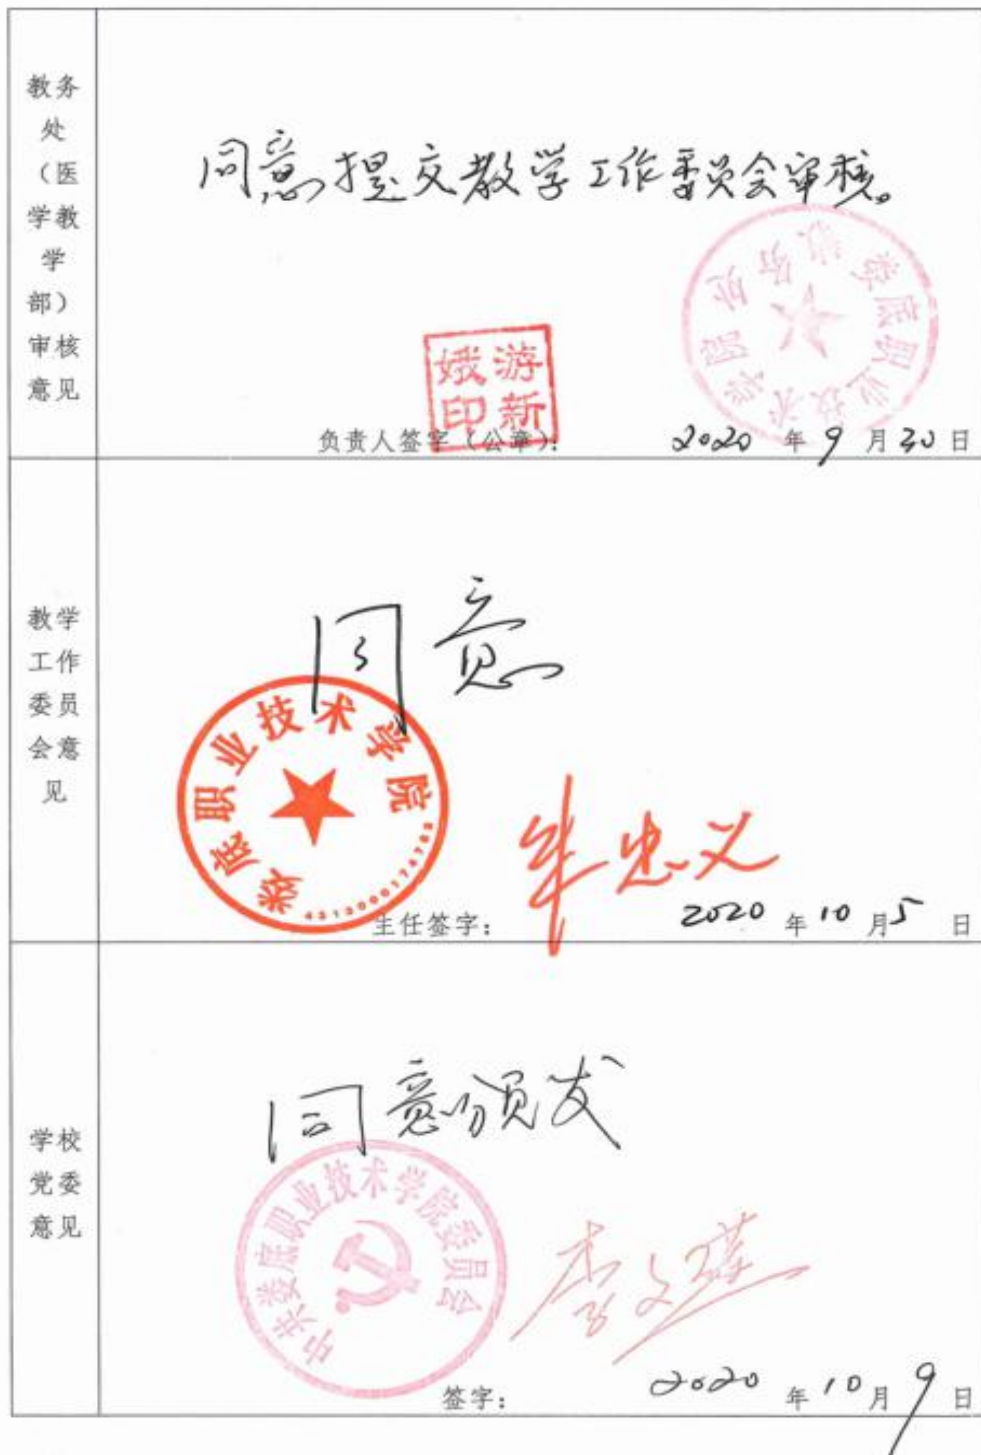 教务
处
（医
学教
学
部）
审核
意见
同意提交教学工作委员会审核。
娄底职业技术学院教务处
游新
娥印
负责人签字（公章）：
2020 年 9 月 30 日
教学
工作
委员
会意
见
同意
娄底职业技术学院
4313000174763
主任签字：
2020 年 10 月 5 日
学校
党委
意见
同意颁发
中共娄底职业技术学院委员会
李文莲
签字：
2020 年 10 月 9 日